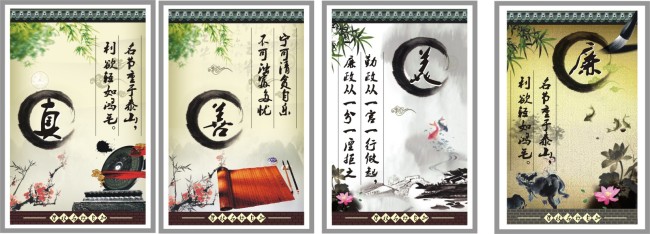 名节重于泰山，
利欲轻如鸿毛。
真
宁可清贫自乐
不可浊富多忧
善
美
勤政从一言一行做起，
廉政从一分一厘拒之
廉
名节重于泰山，
利欲轻如鸿毛。